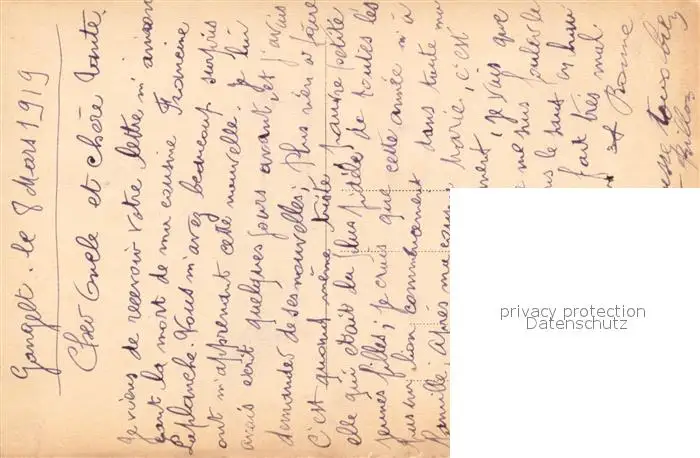 Gouzget. le 8 Mars 1919
Cher Oncle et chère Tante.
Je viens de recevoir votre lettre m'annon
çant la mort de ma cousine Francine
Laplanche. Vous m'avez beaucoup surpris
ont m'apprenant cette nouvelle. Je lui
avais écrit quelques jours avant, et j'avais
demander de ses nouvelles; Plus rien à faire
C'est quand même triste pauvre petite
elle qui était la plus fidèle de toutes les
jeunes filles; je crois que cette année n'a
pas eu bon commencement dans toute ma
famille, après ma cous
Marie, c'est
ment, je vais que
me puis
le haut en bas
fait très mal.
et Bonne
tous bien
privacy protection
Datenschutz